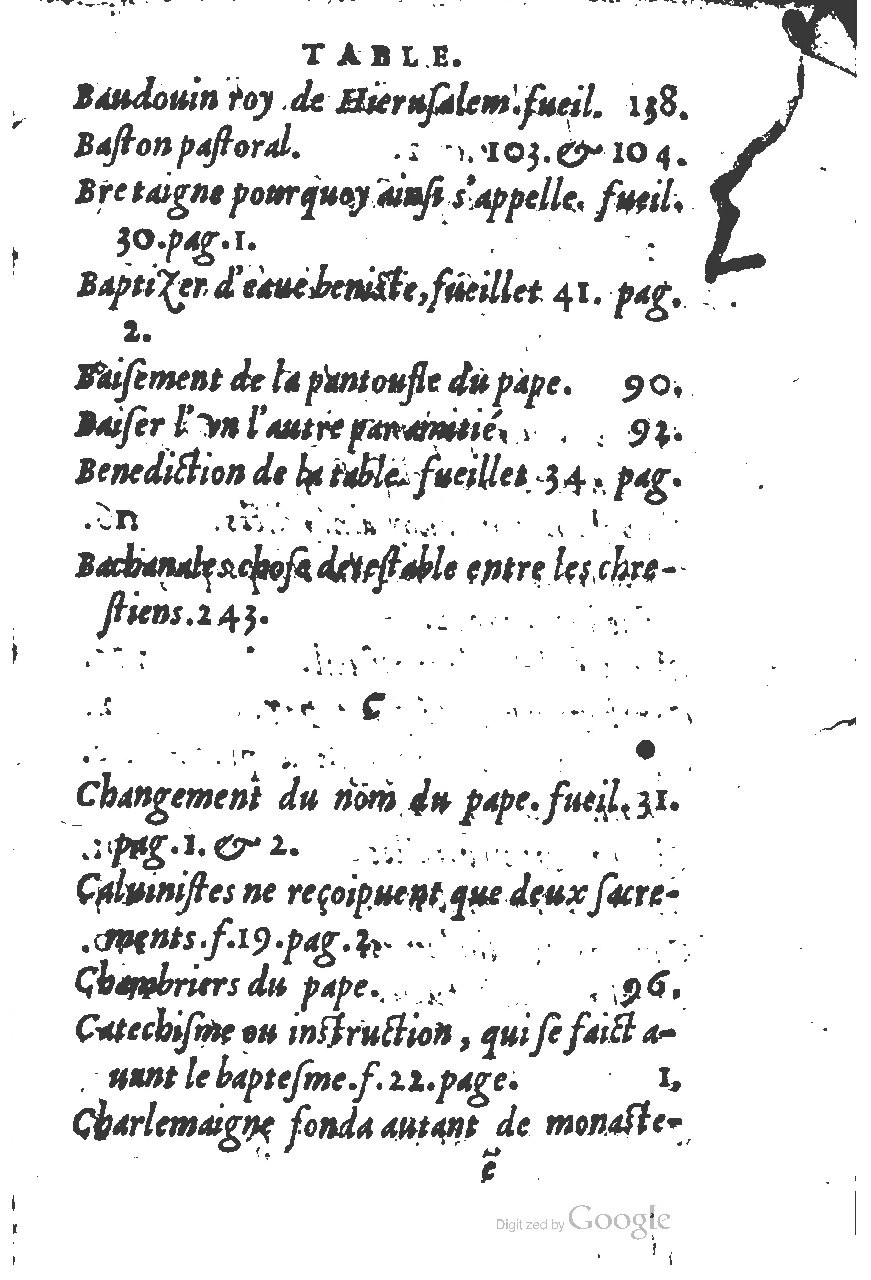 TABLE.
Baudouin roy de Hierusalem. fueil. 138.
Baston pastoral. 103. & 104.
Bretaigne pourquoy ainsi s'appelle. fueil.
30. pag. 1.
Baptizer d'eaue beniste, fueillet 41. pag.
2.
Baisement de la pantoufle du pape. 90.
Baiser l'vn l'autre par amitié. 92.
Benediction de la table. fueillet 34. pag.
Bachanales chose detestable entre les chre-
stiens. 243.
C
Changement du nom du pape. fueil. 31.
pag. 1. & 2.
Caluinistes ne reçoipuent que deux sacre-
ments. f. 19. pag. 2.
Chambriers du pape. 96.
Catechisme ou instruction, qui se faict a-
uant le baptesme. f. 22. page. 1,
Charlemaigne fonda autant de monaste-
ẽ
Digitized by Google